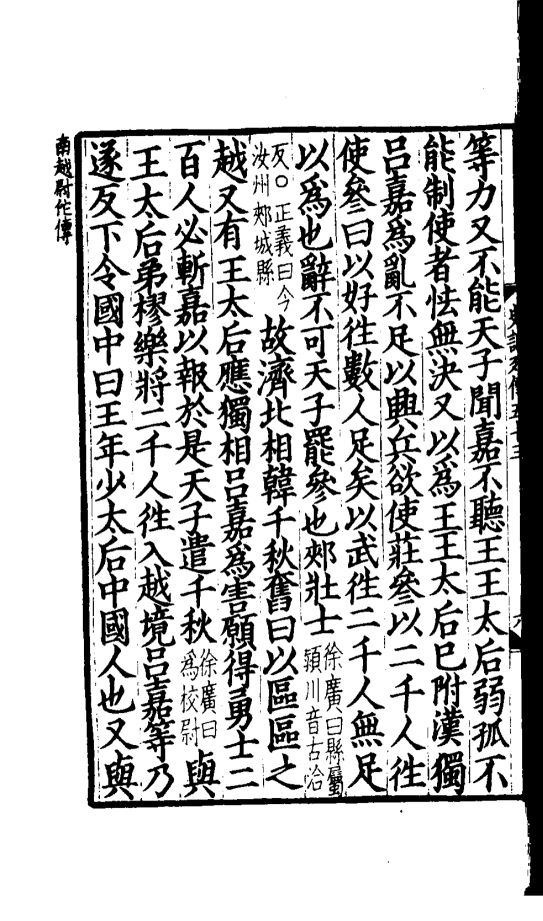 等力又不能天子聞嘉不聽王王太后弱孤不
能制使者怯無決又以爲王王太后已附漢獨
呂嘉爲亂不足以興兵欲使莊參以二千人徃
使參曰以好徃數人足矣以武徃二千人無足
以爲也辭不可天子罷參也郟壯士徐廣曰縣屬
頴川音古洽
反○正義曰今
汝州郟城縣
故濟北相韓千秋奮曰以區區之
越又有王太后應獨相呂嘉爲害願得勇士二
百人必斬嘉以報於是天子遣千秋徐廣曰
爲校尉
與
王太后弟樛樂將二千人徃入越境呂嘉等乃
遂反下令國中曰王年少太后中國人也又與
南越尉佗傳